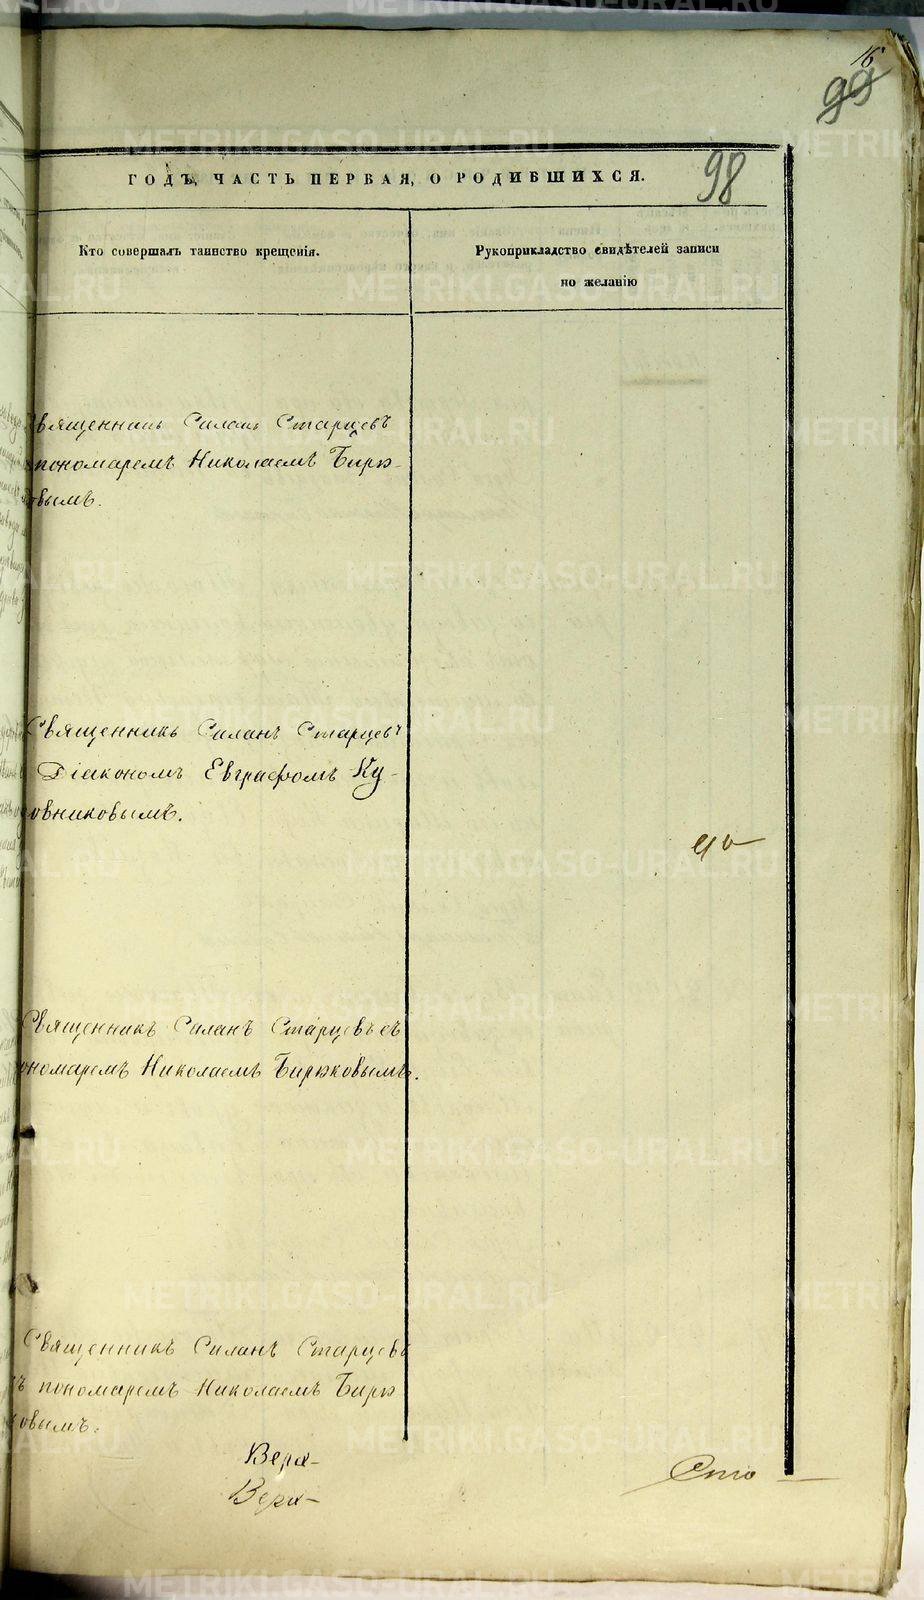 16
99
98
ГОДЪ, ЧАСТЬ ПЕРВАЯ, О РОДИВШИХСЯ.
Кто совершалъ таинство крещенія.
Рукоприкладство свидѣтелей записи
по желанію
Священникъ Силанъ Старцевъ
пономаремъ Николаемъ Бирю-
вымъ.
Священникъ Силанъ Старцевъ
Діакономъ Евграфомъ Ку-
овниковымъ.
Священникъ Силанъ Старцевъ съ
ономаремъ Николаемъ Бирюковымъ.
Священникъ Силанъ Старцевъ
ъ пономаремъ Николаемъ Бирю
овымъ.
Верх-
Верх-
METRIKI.GASO-URAL.RU